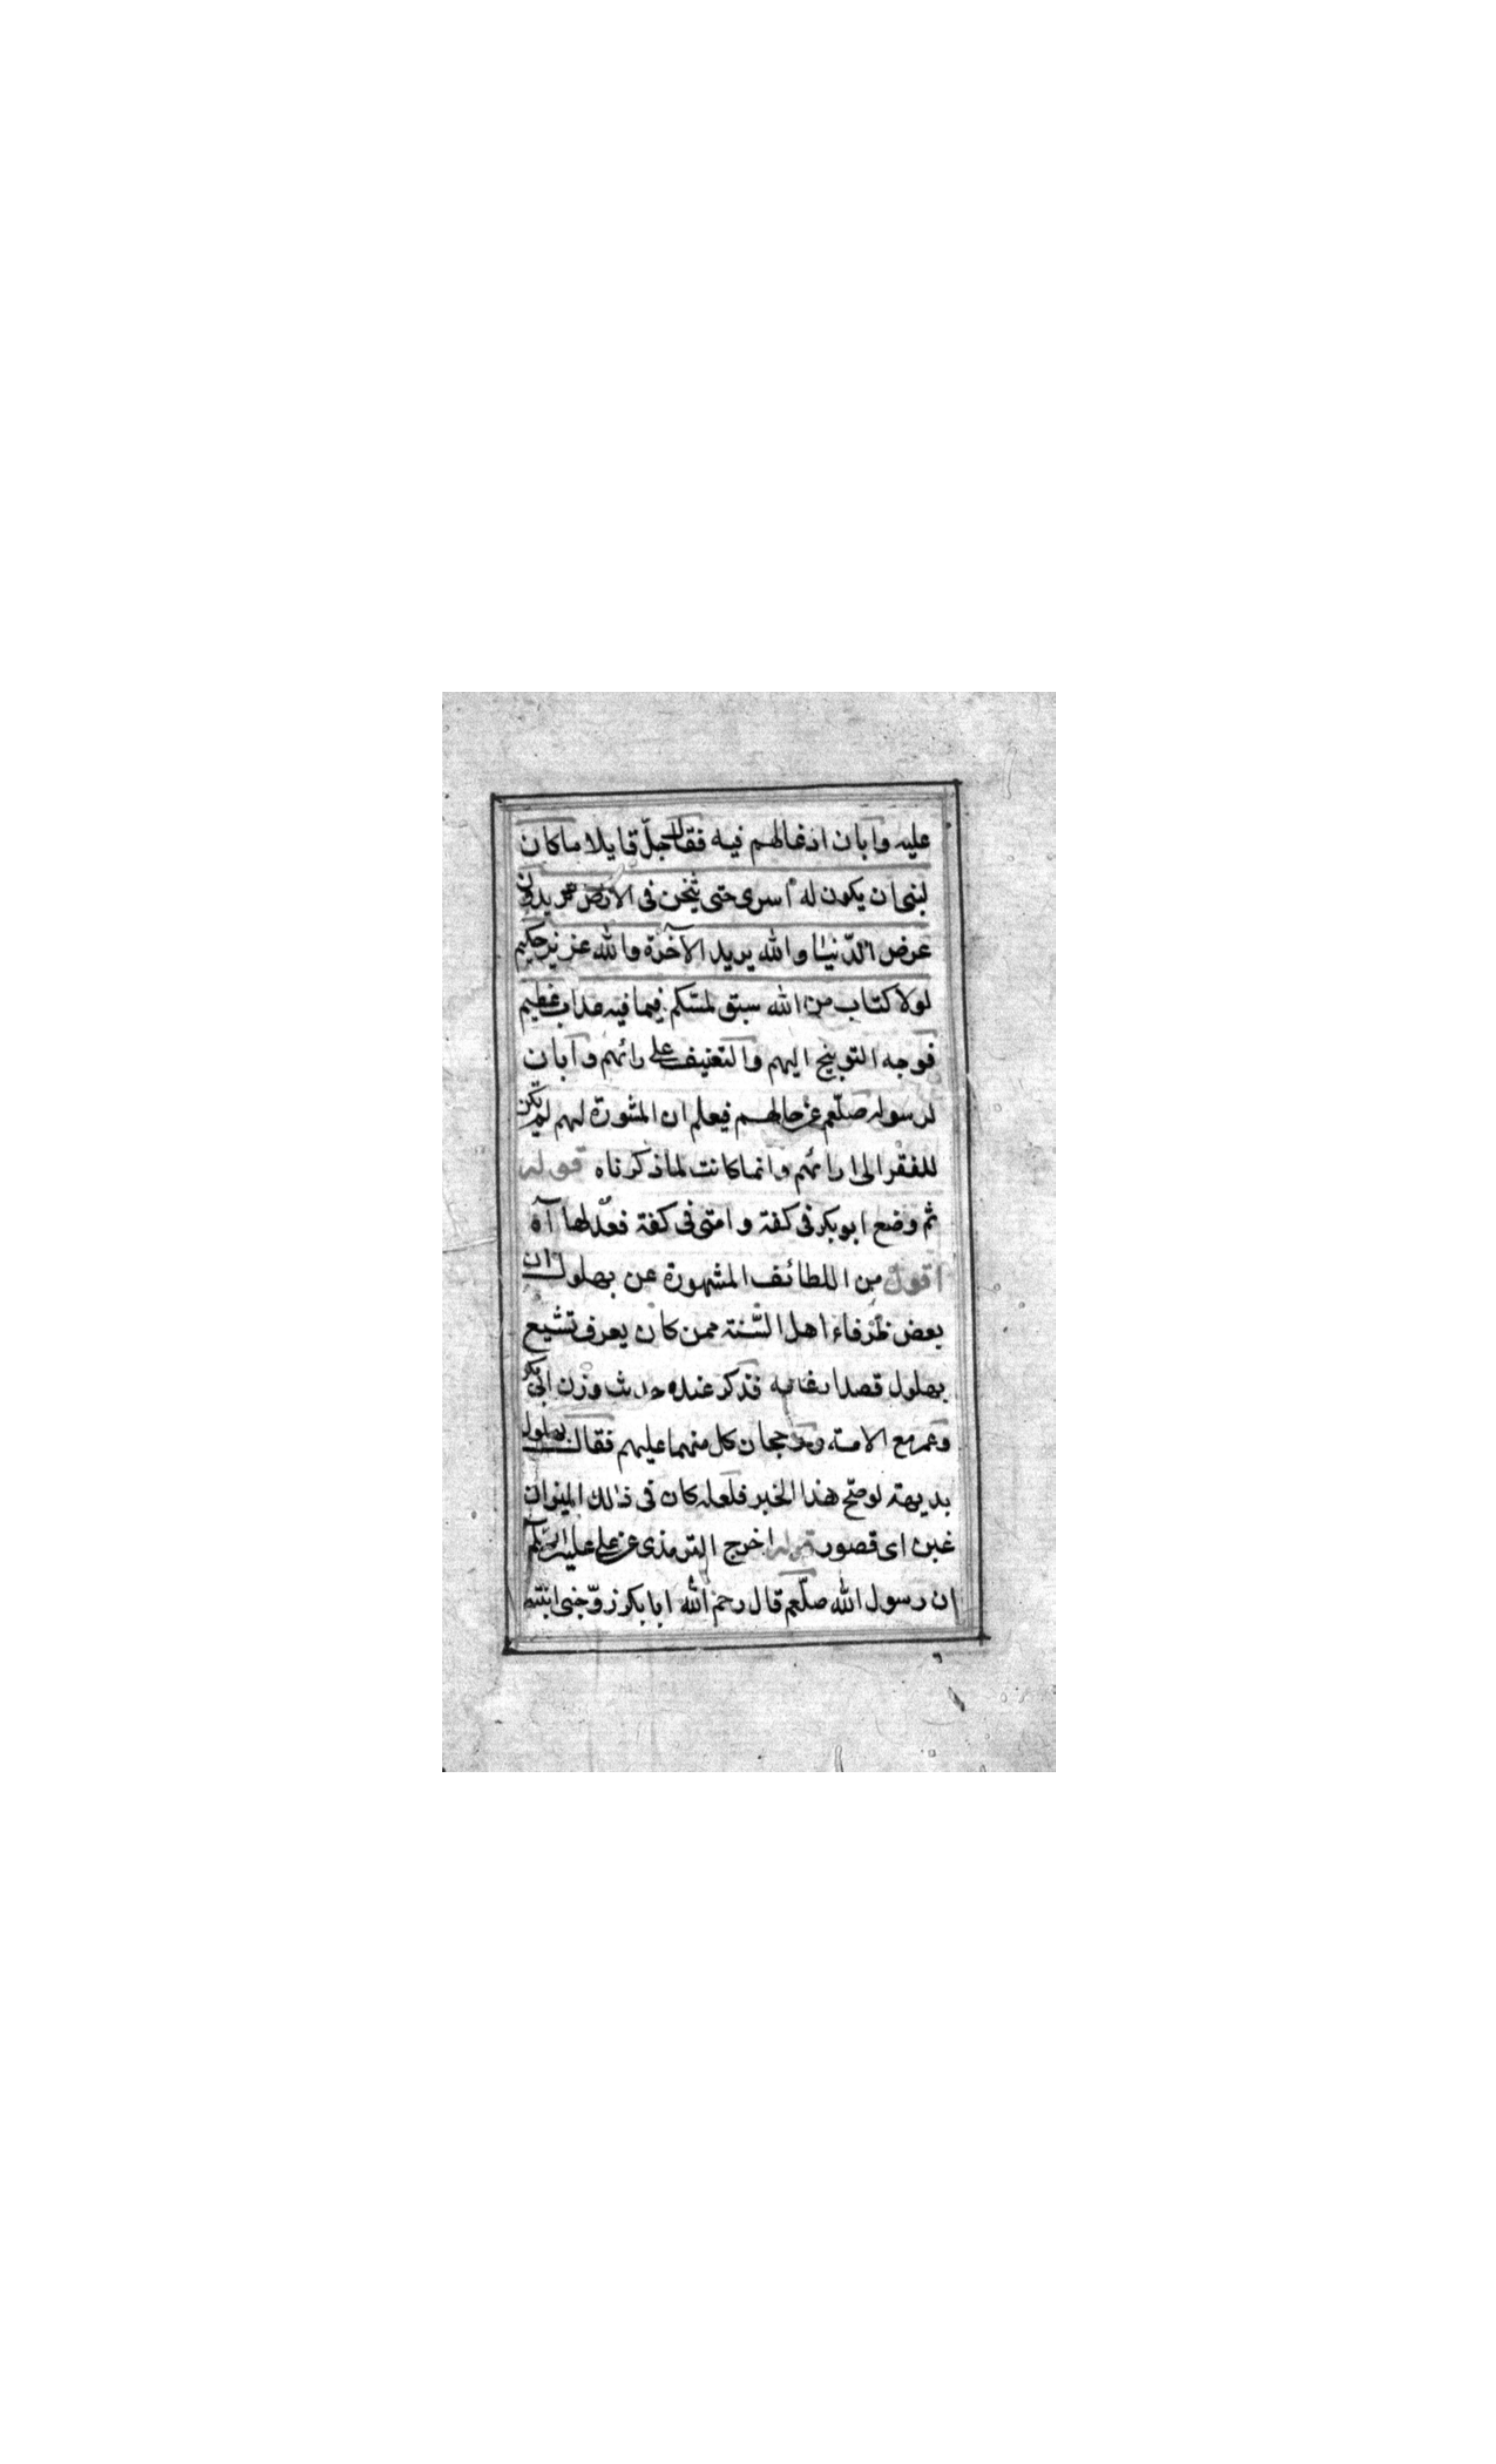 عليه وابان ادغالهم فيه فقال جلّ قايلا ما كان
لنبى ان يكون له اسرى حتى يثخن فى الارض تريدون
عرض الدّنيا والله يريد الآخرة والله عزيز حكيم
لولا كتاب من الله سبق لمسّكم فيما فيه عذاب عظيم
فوجه التوبيخ اليهم والتعنيف على رائهم وابان
لرسوله صلّعم عن حالهم فيعلم ان المشورة لهم لم يكن
للفقر الى ارائهم وانما كانت لما ذكرناه قوله
ثم وضع ابو بكر فى كفة و امتى فى كفة فعدلها آه
اقول من اللطائف المشهورة عن بهلول ان
بعض ظرفاء اهل السّنة ممن كان يعرف تشيع
بهلول قصد فذكر عنده حديث وزن ابى بكر
وعمر مع الامة ورجحان كل منهما عليهم فقال بهلول
بديهة لو صحّ هذا الخبر فلعله كان فى ذلك الميزان
غبن اى قصور قوله اخرج الترمذى عن على عليه السّلام
ان رسول الله صلّعم قال رحم الله ابا بكر زوّجنى ابنته